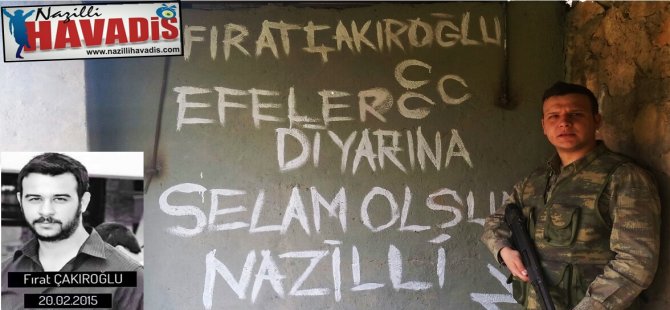 Nazilli
HAVADİS
www.nazillihavadis.com
FIRAT ÇAKIROĞLU
CCC
EFELER
DİYARINA
SELAM OLSUN
NAZİLLİ
Fırat ÇAKIROĞLU
20.02.2015